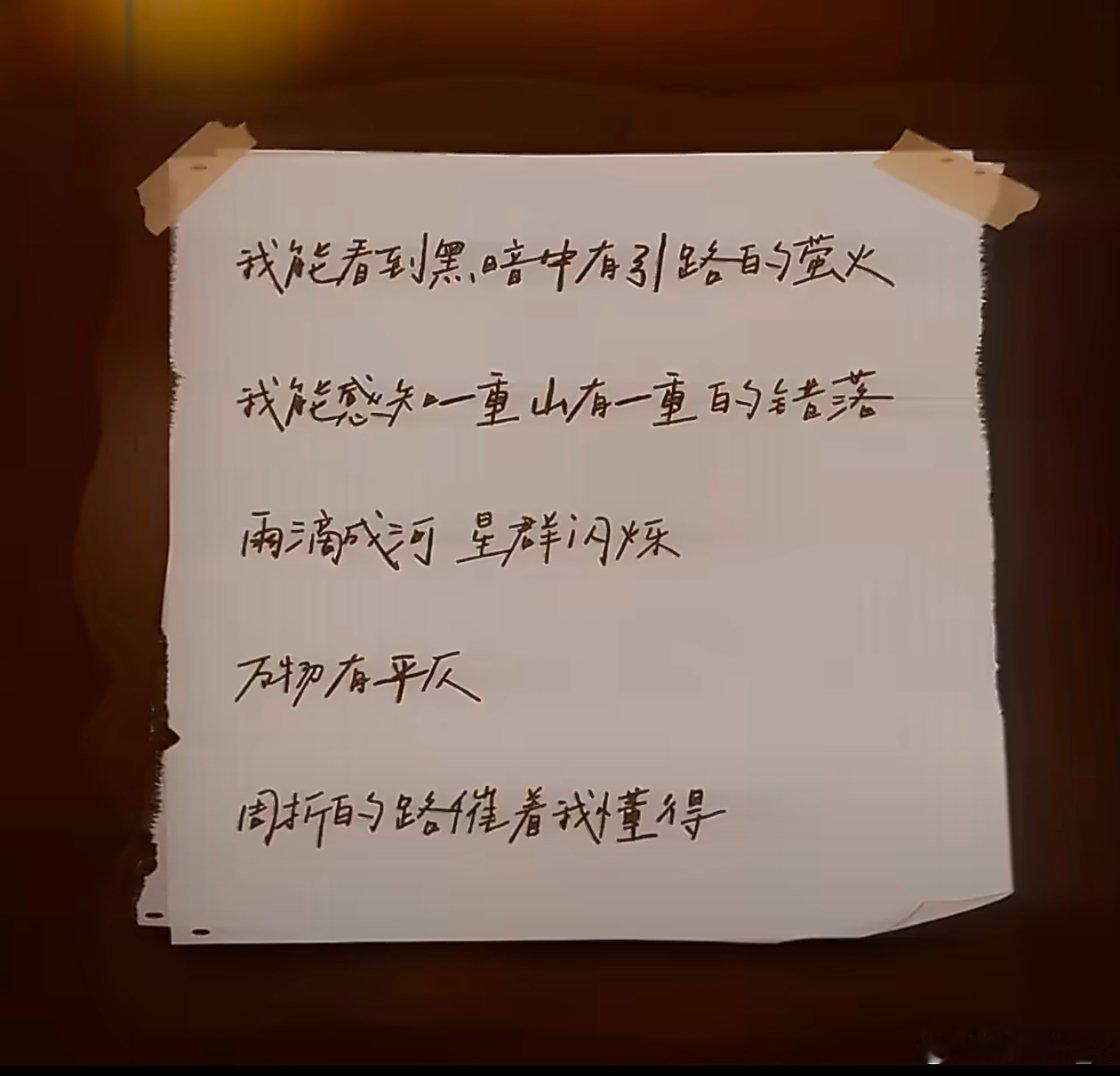 我能看到黑暗中有引路的萤火
我能感知一重山有一重的错落
雨滴成河 星群闪烁
万物有平仄
周折的路催着我懂得